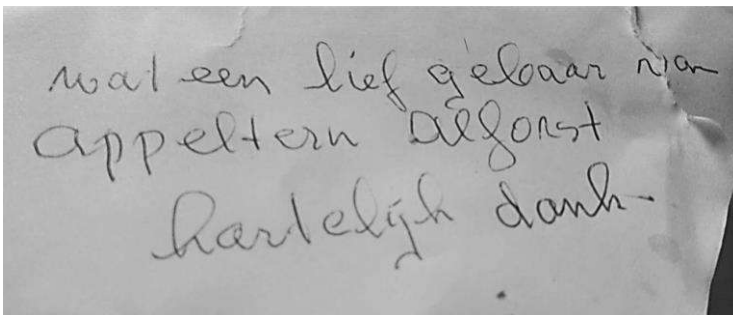 wat een lief gebaar van
appeltern Alfonst
hartelijk dank